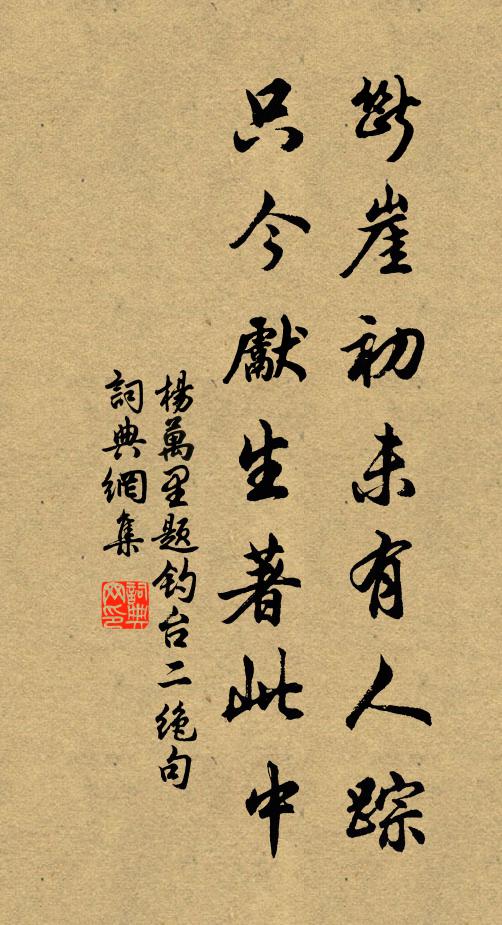 斷崖初未有人踪
只今獻生著此中
楊萬里题钓台二絶句
詞典網集
詞典网印